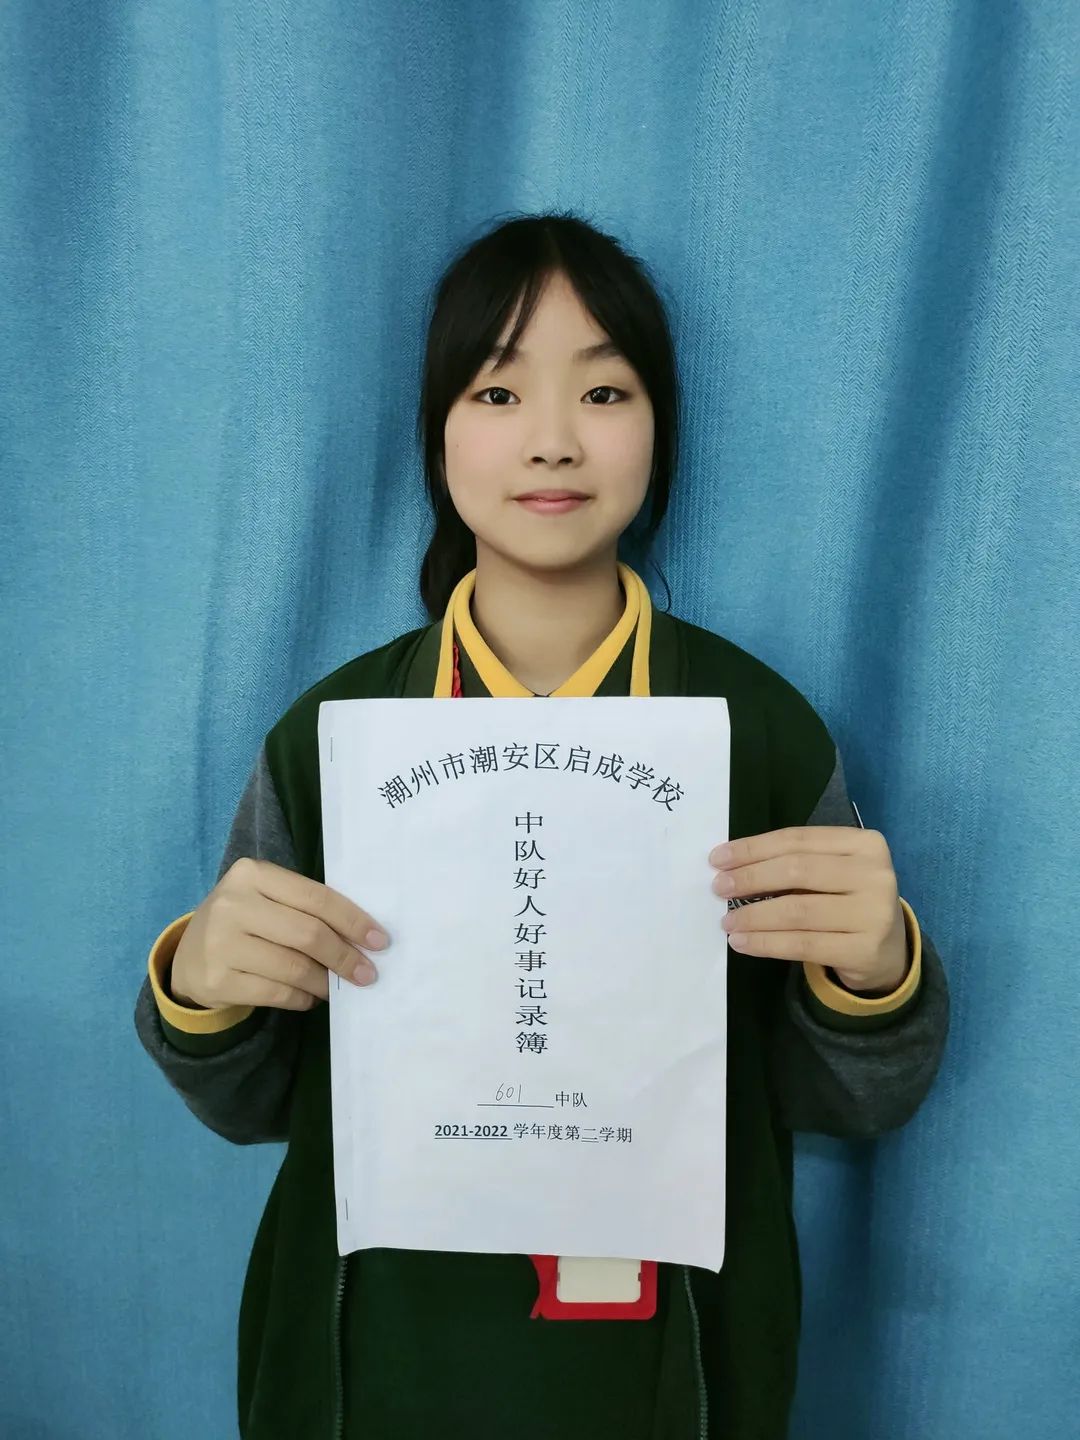 潮州市潮安区启成学校
中队好人好事记录簿
601 中队
2021-2022 学年度第二学期